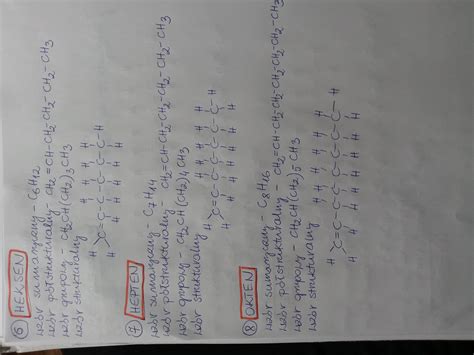 ⑥ HEKSEN
wzór sumaryczny - C6H12
wzór półstrukturalny - CH2=CH-CH2-CH2-CH2-CH3
wzór grupowy - CH2CH(CH2)3CH3
wzór strukturalny
⑦ HEPTEN
wzór sumaryczny - C7H14
wzór półstrukturalny - CH2=CH-CH2-CH2-CH2-CH2-CH3
wzór grupowy - CH2CH(CH2)4CH3
wzór strukturalny
⑧ OKTEN
wzór sumaryczny - C8H16
wzór półstrukturalny - CH2=CH-CH2-CH2-CH2-CH2-CH2-CH3
wzór grupowy - CH2CH(CH2)5CH3
wzór strukturalny